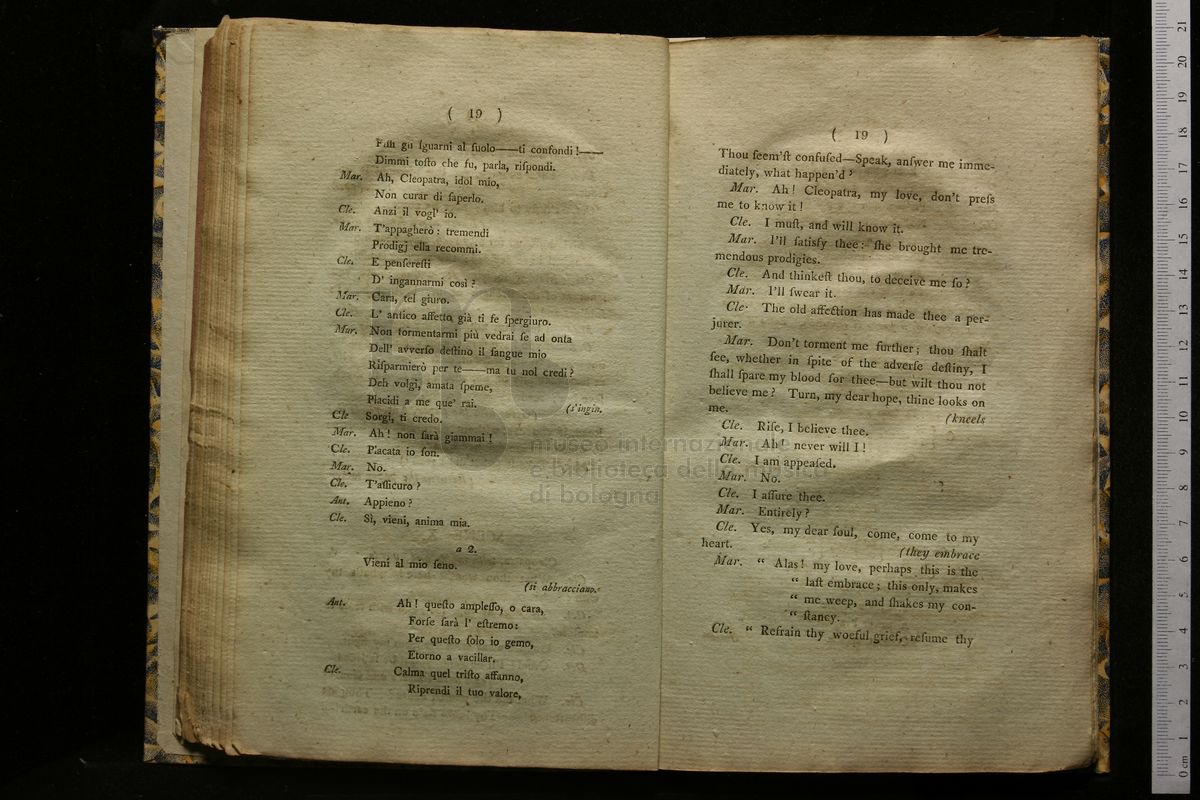 ( 19 )
gli ſguarni al ſuolo——ti confondi !——
Dimmi toſto che fu, parla, riſpondi.
Mar. Ah, Cleopatra, idol mio,
Non curar di ſaperlo.
Cle. Anzi il vogl' io.
Mar. T'appagherò : tremendi
Prodigj ella recommi.
Cle. E penſereſti
D' ingannarmi così ?
Mar. Cara, tel giuro.
Cle. L' antico affetto già ti fe ſpergiuro.
Mar. Non tormentarmi più vedrai ſe ad onta
Dell' avverſo deſtino il ſangue mio
Riſparmierò per te——ma tu nol credi ?
Deh volgi, amata ſpeme,
Placidi a me que' rai. (s'ingin.
Cle Sorgi, ti credo.
Mar. Ah ! non ſarà giammai !
Cle. Placata io ſon.
Mar. No.
Cle. T'aſſicuro ?
Ant. Appieno ?
Cle. Sì, vieni, anima mia.
a 2.
Vieni al mio ſeno.
(si abbracciano.
Ant. Ah ! queſto ampleſſo, o cara,
Forſe ſarà l' eſtremo :
Per queſto ſolo io gemo,
Etorno a vacillar.
Cle. Calma quel triſto affanno,
Riprendi il tuo valore,
( 19 )
Thou ſeem'ſt confuſed—Speak, anſwer me imme-
diately, what happen'd ?
Mar. Ah ! Cleopatra, my love, don't preſs
me to know it !
Cle. I muſt, and will know it.
Mar. I'll ſatisfy thee : ſhe brought me tre-
mendous prodigies.
Cle. And thinkeſt thou, to deceive me ſo ?
Mar. I'll ſwear it.
Cle. The old affection has made thee a per-
jurer.
Mar. Don't torment me further ; thou ſhalt
ſee, whether in ſpite of the adverſe deſtiny, I
ſhall ſpare my blood for thee—but wilt thou not
believe me ? Turn, my dear hope, thine looks on
me. (kneels
Cle. Riſe, I believe thee.
Mar. Ah ! never will I !
Cle. I am appeaſed.
Mar. No.
Cle. I aſſure thee.
Mar. Entirely ?
Cle. Yes, my dear ſoul, come, come to my
heart. (they embrace
Mar. “ Alas ! my love, perhaps this is the
“ laſt embrace ; this only, makes
“ me weep, and ſhakes my con-
“ ſtancy.
Cle. “ Refrain thy woeful grief, reſume thy
museo internazionale
e biblioteca della musica
di bologna
0 cm 1 2 3 4 5 6 7 8 9 10 11 12 13 14 15 16 17 18 19 20 21